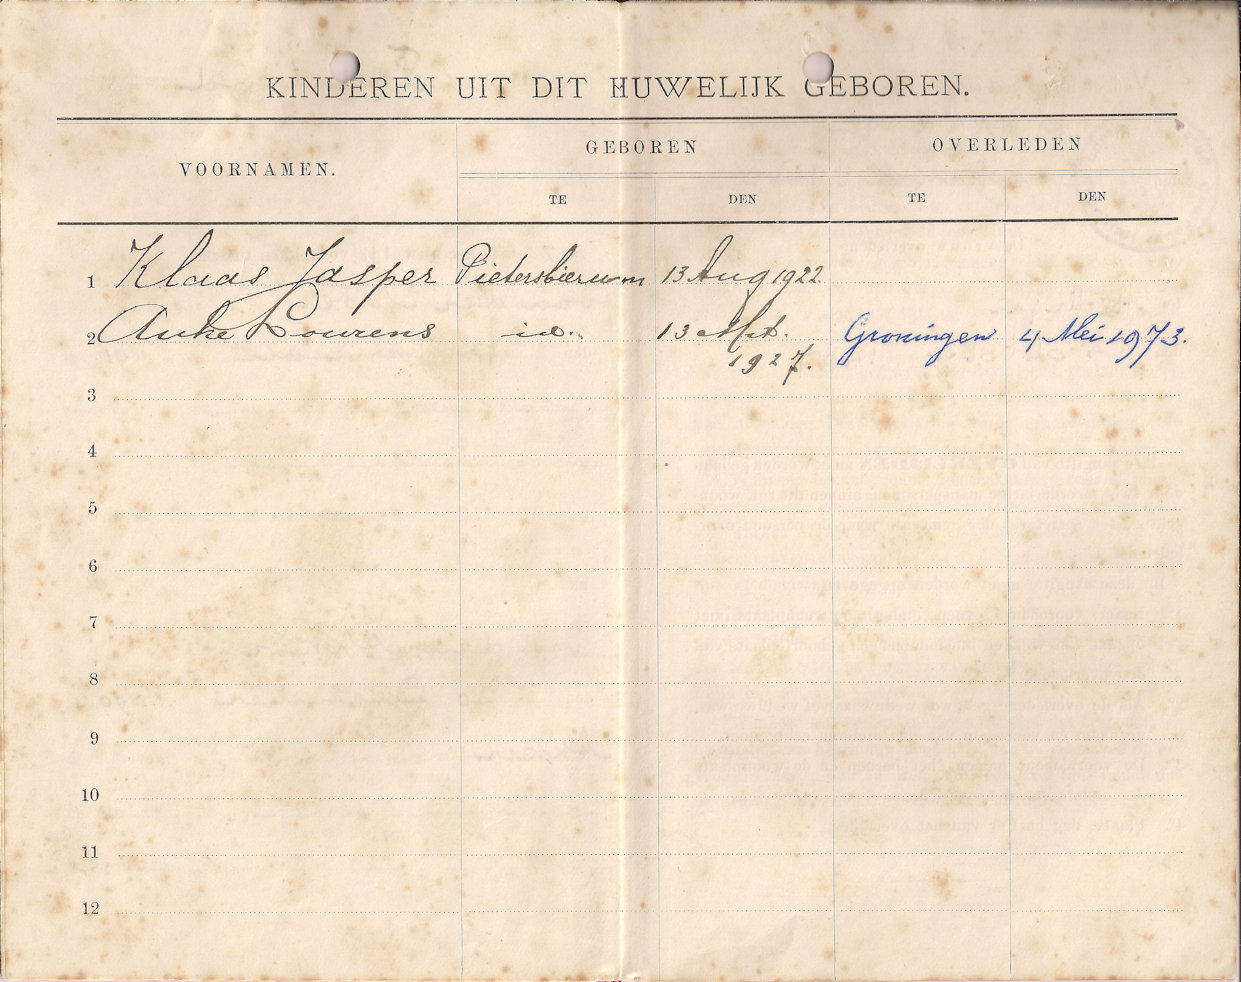 KINDEREN UIT DIT HUWELIJK GEBOREN.
VOORNAMEN. GEBOREN OVERLEDEN
TE DEN TE DEN
1 Klaas Jasper Pietersbierum 13 Aug 1922.
2 Anke Lourens id. 13 Mrt. Groningen 4 Mei 1973.
1927.
3
4
5
6
7
8
9
10
11
12